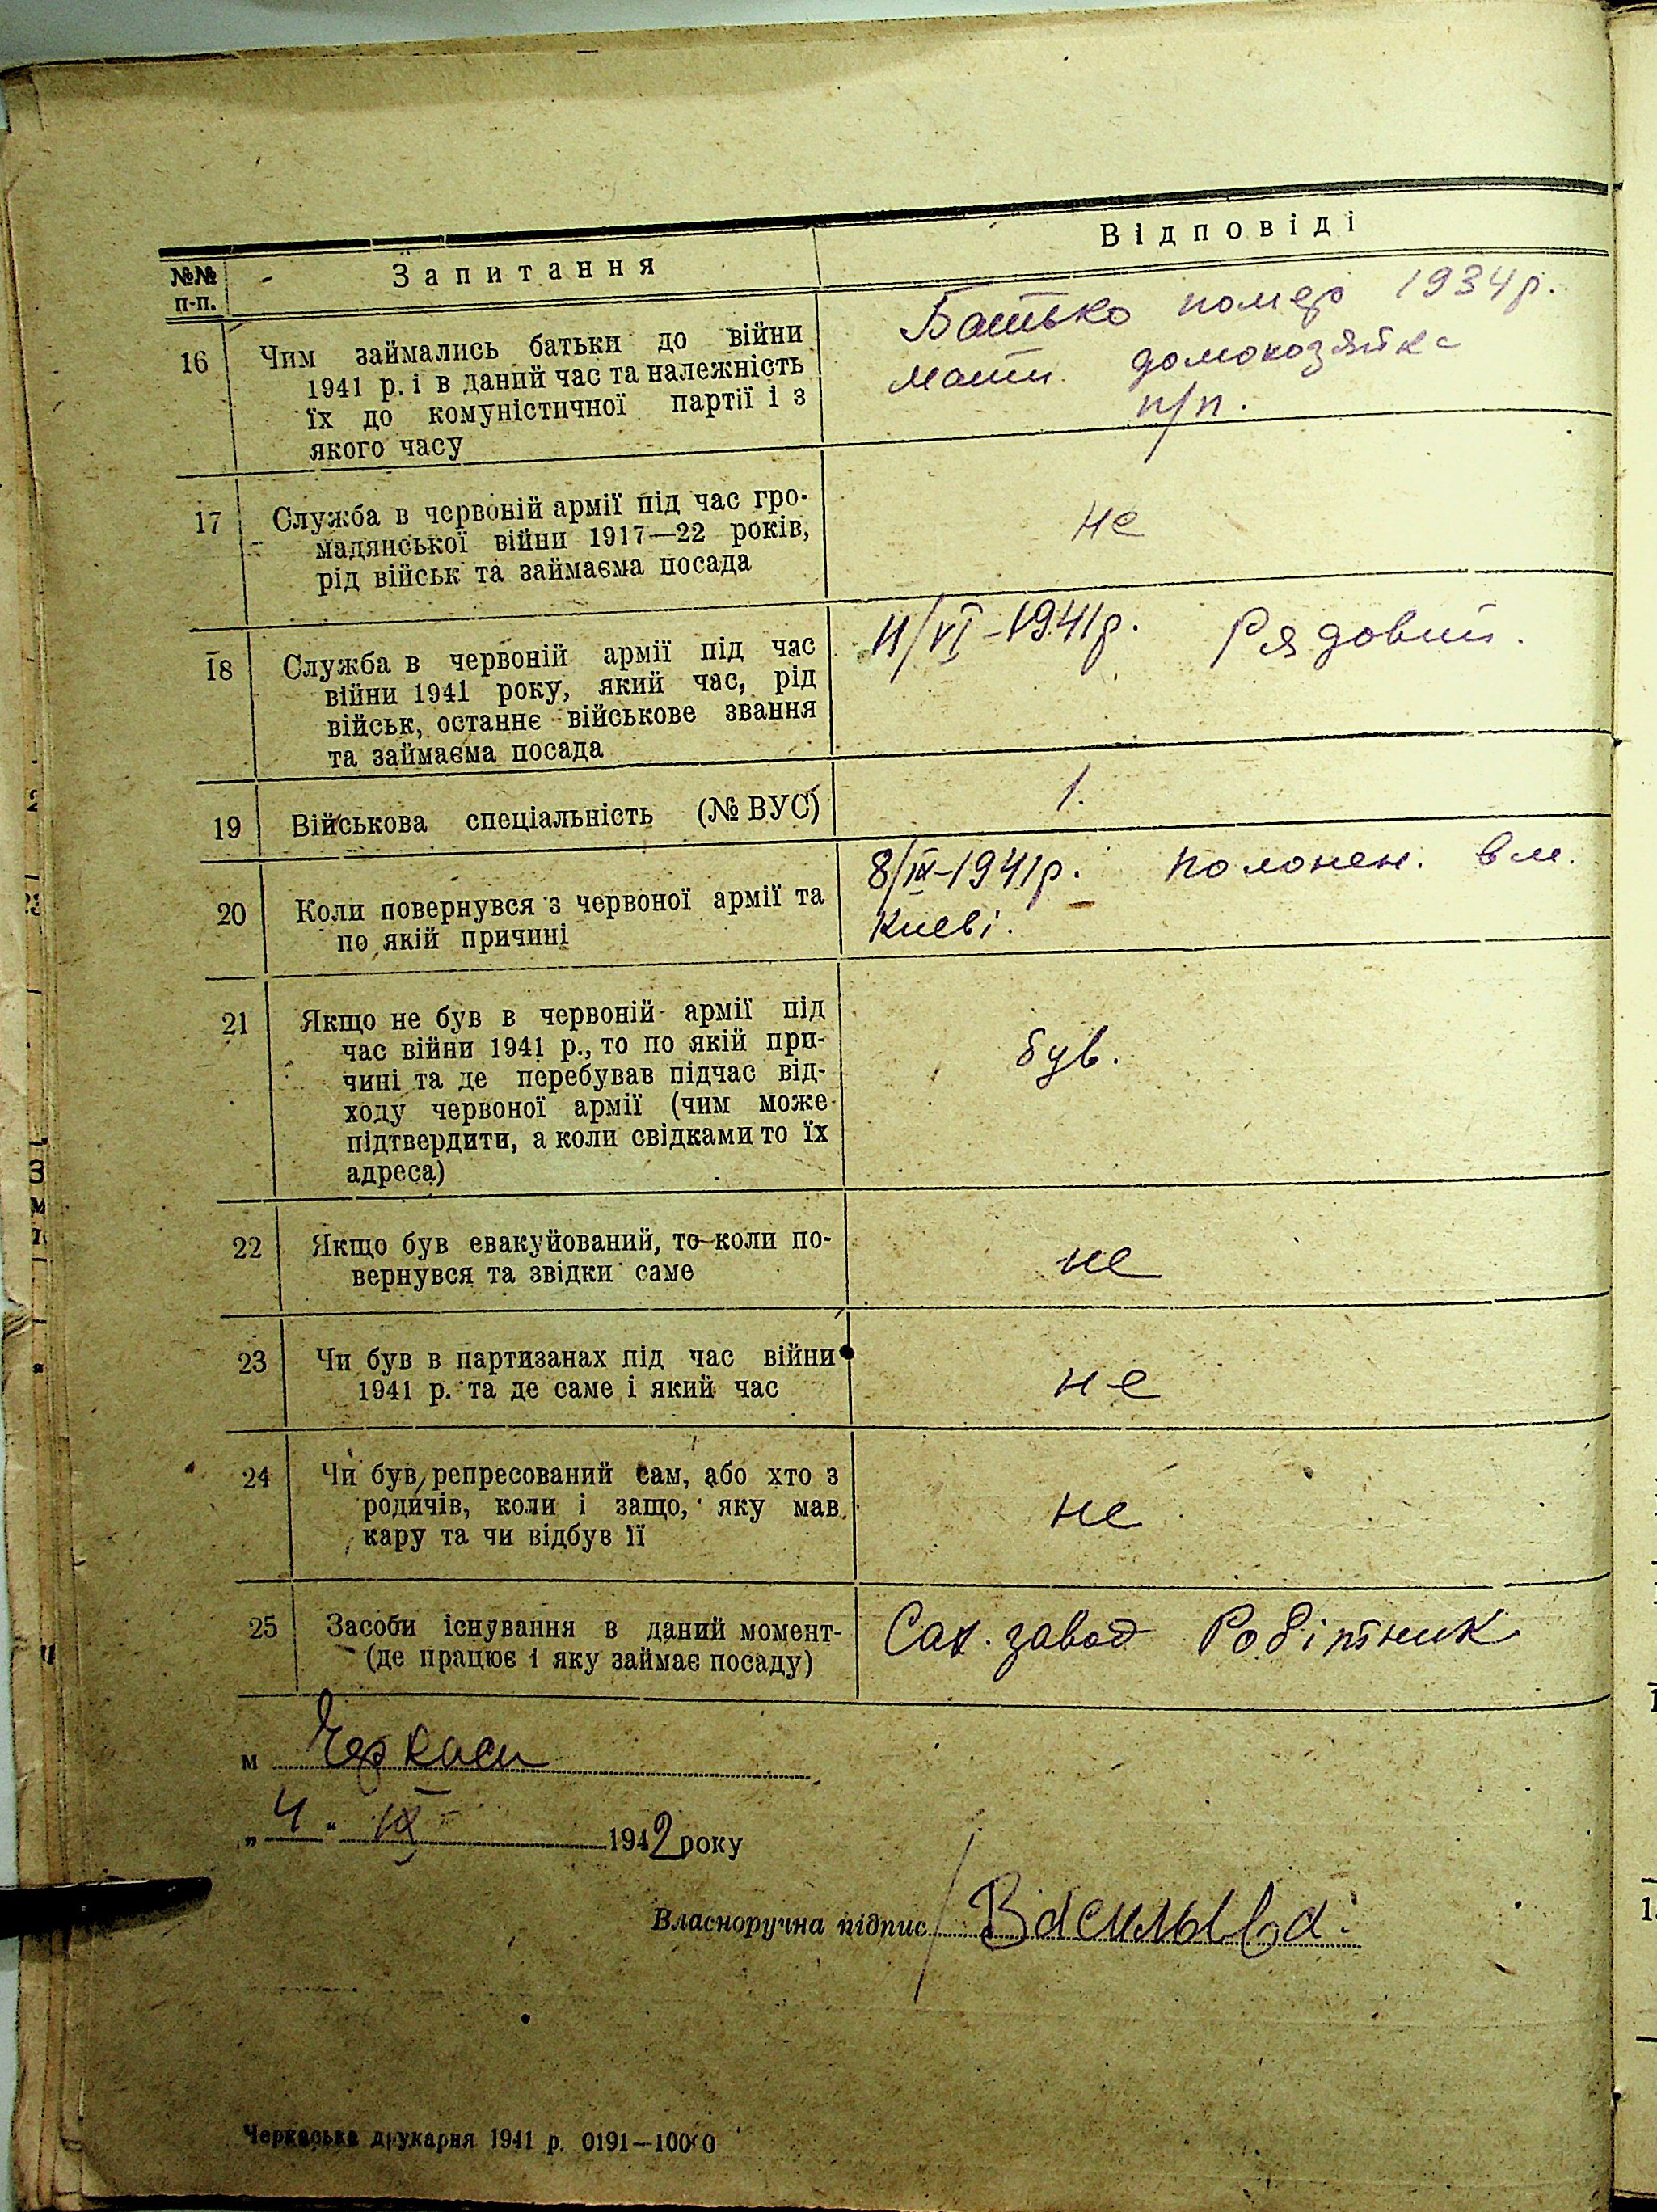 №№ п-п. Запитання Відповіді
16 Чим займались батьки до війни
1941 р. і в даний час та належність
їх до комуністичної партії і з
якого часу
Батько помер 1934 р.
мати домохозяйка
п/п.
17 Служба в червоній армії під час гро-
мадянської війни 1917—22 років,
рід військ та займаєма посада
не
18 Служба в червоній армії під час
війни 1941 року, який час, рід
військ, останнє військове звання
та займаєма посада
11/VI-1941р. Рядовий.
19 Військова спеціальність (№ ВУС)
1.
20 Коли повернувся з червоної армії та
по якій причині
8/IX-1941р. полонен. в м.
Києві.
21 Якщо не був в червоній армії під
час війни 1941 р., то по якій при-
чині та де перебував підчас від-
ходу червоної армії (чим може
підтвердити, а коли свідками то їх
адреса)
був.
22 Якщо був евакуйований, то коли по-
вернувся та звідки саме
не
23 Чи був в партизанах під час війни
1941 р. та де саме і який час
не
24 Чи був репресований сам, або хто з
родичів, коли і защо, яку мав
кару та чи відбув її
не
25 Засоби існування в даний момент-
(де працює і яку займає посаду)
Сах. завод Робітник
м Черкаси
„4“ IX 1942 року
Власноручна підпис
Черкаська друкарня 1941 р. 0191—10000